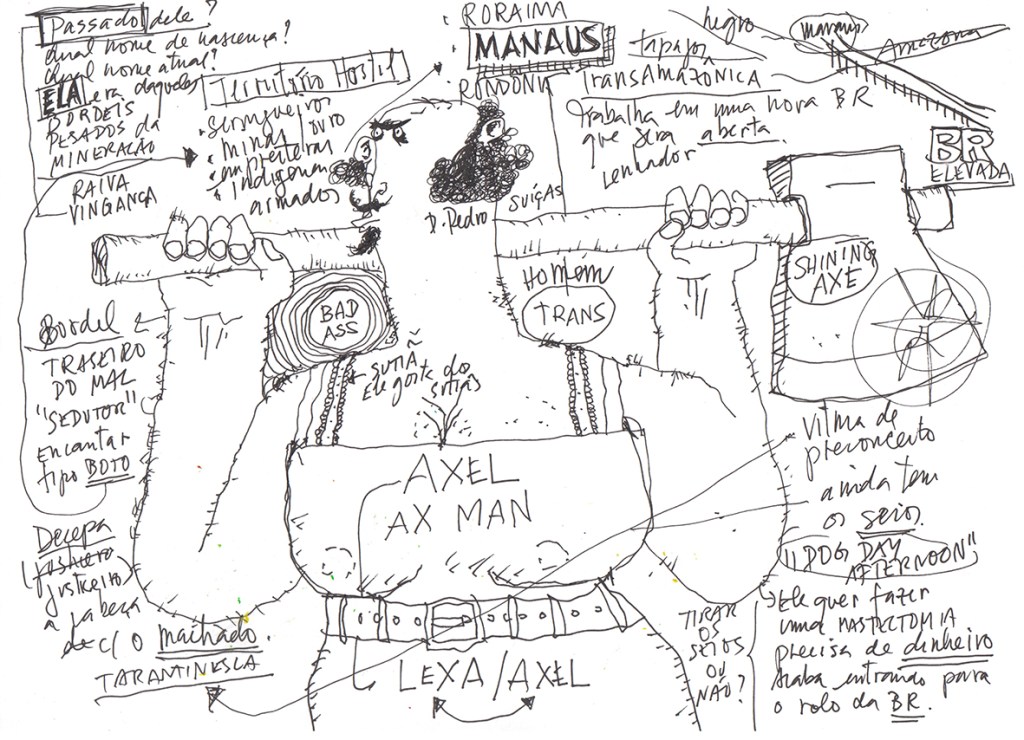 Passado dele?
Qual nome de nascença?
Qual nome atual?
ELA era daqueles
BORDEIS
PESADOS DA
MINERAÇÃO
RAIVA
VINGANÇA
Território Hostil
Seringueiros
Minas/ouro
Indígenas
armados
RORAIMA
MANAUS
RONDONIA
negro
manaus
Amazonas
tapajos
TRANSAMAZÔNICA
trabalha em uma nova BR
que será aberta
Lenhador
BR
ELEVADA
D. Pedro
SUÍÇAS
Homem
TRANS
SHINING
AXE
BAD
ASS
SUTIÃ
Ele gosta de
sutiãs
Bordel
TRASEIRO
DO MAL
"SEDUTOR"
Encantar
tipo BOTO
AXEL
AX MAN
Decepa
justiceiro
a cabeça
c/ o machado.
TARANTINESCA
LEXA/AXEL
vitima de
preconceito
ainda tem
os seios.
"DOG DAY
AFTERNOON"
TIRAR
OS
SEIOS
OU
NÃO?
Ele quer fazer
uma MASTECTOMIA
precisa de dinheiro
Acaba entrando para
o rolo da BR.